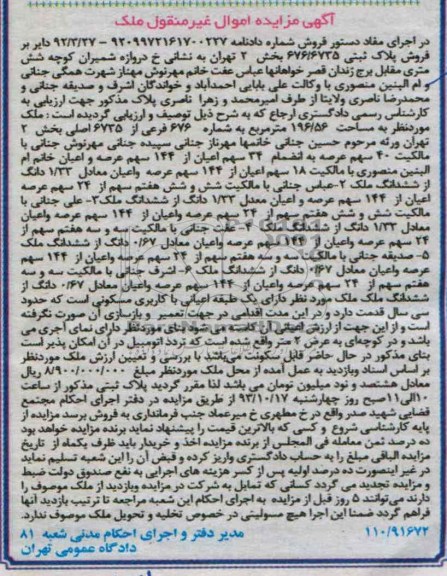 آگهی مزایده اموال غیرمنقول ملک
در اجرای مفاد دستور فروش شماره دادنامه ۹۲۰۹۹۷۲۱۶۱۷۰۰۲۲۷ – ۹۲/۳/۲۷ دایر بر
فروش پلاک ثبتی ۶۷۶/۶۷۳۵ بخش ۲ تهران به نشانی خ دروازه شمیران کوچه شش
متری مقابل برج زندان قصر خواهانها عباس عفت خانم مهرنوش مهناز شهرت همگی جنانی
و ام البنین منصوری با وکالت علی بابایی احمدآباد و خواندگان اشرف و صدیقه جنانی و
محمدرضا ناصری ولایتا از طرف امیرمحمد و زهرا ناصری پلاک مذکور جهت ارزیابی به
کارشناس رسمی دادگستری ارجاع که به شرح ذیل توصیف و ارزیابی گردیده است : ملک
موردنظر به مساحت ۱۹۶/۵۶ مترمربع به شماره ۶۷۶ فرعی از ۶۷۳۵ اصلی بخش ۲
تهران ورثه مرحوم حسین جنانی خانمها مهرناز جنانی سپیده جنانی مهرنوش جنانی با
مالکیت ۴۰ سهم عرصه به انضمام ۳۴ سهم اعیان از ۱۴۴ سهم عرصه و اعیان خانم ام
البنین منصوری با مالکیت ۱۸ سهم اعیان از ۱۴۴ سهم عرصه واعیان معادل ۱/۳۳ دانگ
از ششدانگ ملک ۲-عباس جنانی با مالکیت شش و شش هفتم سهم از ۲۴ سهم عرصه
اعیان از ۱۴۴ سهم عرصه و اعیان معدل ۱/۳۳ دانگ از ششدانگ ملک۳- علی جنانی با
مالکیت شش و شش هفتم سهم از ۲۴ سهم عرصه واعیان از ۱۴۴ سهم عرصه واعیان
معادل ۱/۳۳ دانگ از ششدانگ ملک ۴- عفت جنانی با مالکیت سه و سه هفتم سهم از
۲۴ سهم عرصه واعیان از ۱۴۴ سهم عرصه واعیان معادل ۰/۶۷ دانگ از ششدانگ ملک
۵- صدیقه جنانی با مالکیت سه و سه هفتم سهم از ۲۴ سهم عرصه واعیان از ۱۴۴ سهم
عرصه واعیان معادل ۰/۶۷ دانگ از ششدانگ ملک ۶- اشرف جنانی با مالکیت سه و سه
هفتم سهم از ۲۴ سهم عرصه واعیان از ۱۴۴ سهم عرصه واعیان معادل ۰/۶۷ دانگ از
ششدانگ ملک ملک مورد نظر دارای یک طبقه اعیانی با کاربری مسکونی است که حدود
سی سال قدمت دارد و در این مدت اقدامی در جهت تعمیر و بازسازی آن صورت نگرفته
است و از این جهت از ارزش اعیانی آن کاسته شده بنای موردنظر دارای نمای آجری می
باشد و در کوچه‌ای به عرض ۲ متر واقع شده است که تردد اتومبیل در آن امکان پذیر است
بنای مذکور در حال حاضر قابل سکونت می‌باشد با بررسی و تعیین ارزش ملک موردنظر
بر اساس اسناد وبازدید به عمل آمده از محل ملک موردنظر مبلغ ۸/۹۰۰/۰۰۰/۰۰۰ ریال
معادل هشتصد و نود میلیون تومان می باشد لذا مقرر گردید پلاک ثبتی مذکور از ساعت
۱۰الی۱۱صبح روز چهارشنبه ۹۳/۱۰/۱۷ از طریق مزایده در دفتر اجرای احکام مجتمع
قضایی شهید صدر واقع در خ مطهری خ میرعماد جنب فرمانداری به فروش برسد مزایده از
پایه کارشناسی شروع و کسی که بالاترین قیمت را پیشنهاد نماید برنده مزایده خواهد بود
ده درصد ثمن معامله فی المجلس از برنده مزایده اخذ و خریدار باید ظرف یکماه از تاریخ
مزایده الباقی مبلغ را به حساب دادگستری واریز کرده و قبض آن را این شعبه تسلیم نماید
در غیر اینصورت ده درصد اولیه پس از کسر هزینه های اجرایی به نفع صندوق دولت ضبط
و مزایده تجدید می گردد کسانی که تمایل به شرکت در مزایده وبازدید از ملک موصوف را
دارند می‌توانند ۵ روز قبل از مزایده به اجرای احکام این شعبه مراجعه تا ترتیب بازدید آنها
فراهم گردد ضمنا این اجرا هیچ مسولیتی در خصوص تخلیه و تحویل ملک موصوف ندارد.
۱۱۰/۹۱۶۷۲ مدیر دفتر و اجرای احکام مدنی شعبه ۸۱
دادگاه عمومی تهران